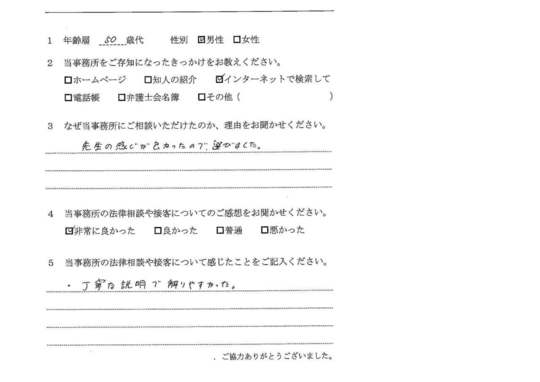 1 年齢層 50 歳代 性別 ☑男性 □女性
2 当事務所をご存知になったきっかけをお教えください。
□ホームページ □知人の紹介 ☑インターネットで検索して
□電話帳 □弁護士会名簿 □その他（ ）
3 なぜ当事務所にご相談いただけたのか、理由をお聞かせください。
先生の感じが良かったので、選びました。
4 当事務所の法律相談や接客についてのご感想をお聞かせください。
☑非常に良かった □良かった □普通 □悪かった
5 当事務所の法律相談や接客について感じたことをご記入ください。
・丁寧な説明で解りやすかった。
．ご協力ありがとうございました。